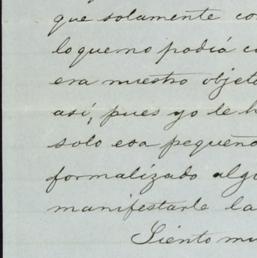 que solamente co
loquemo podiá co
era nuestro objet
así, pues yo le h
solo esa pequeñ
formalizado algu
manifestarle la
Siento mu